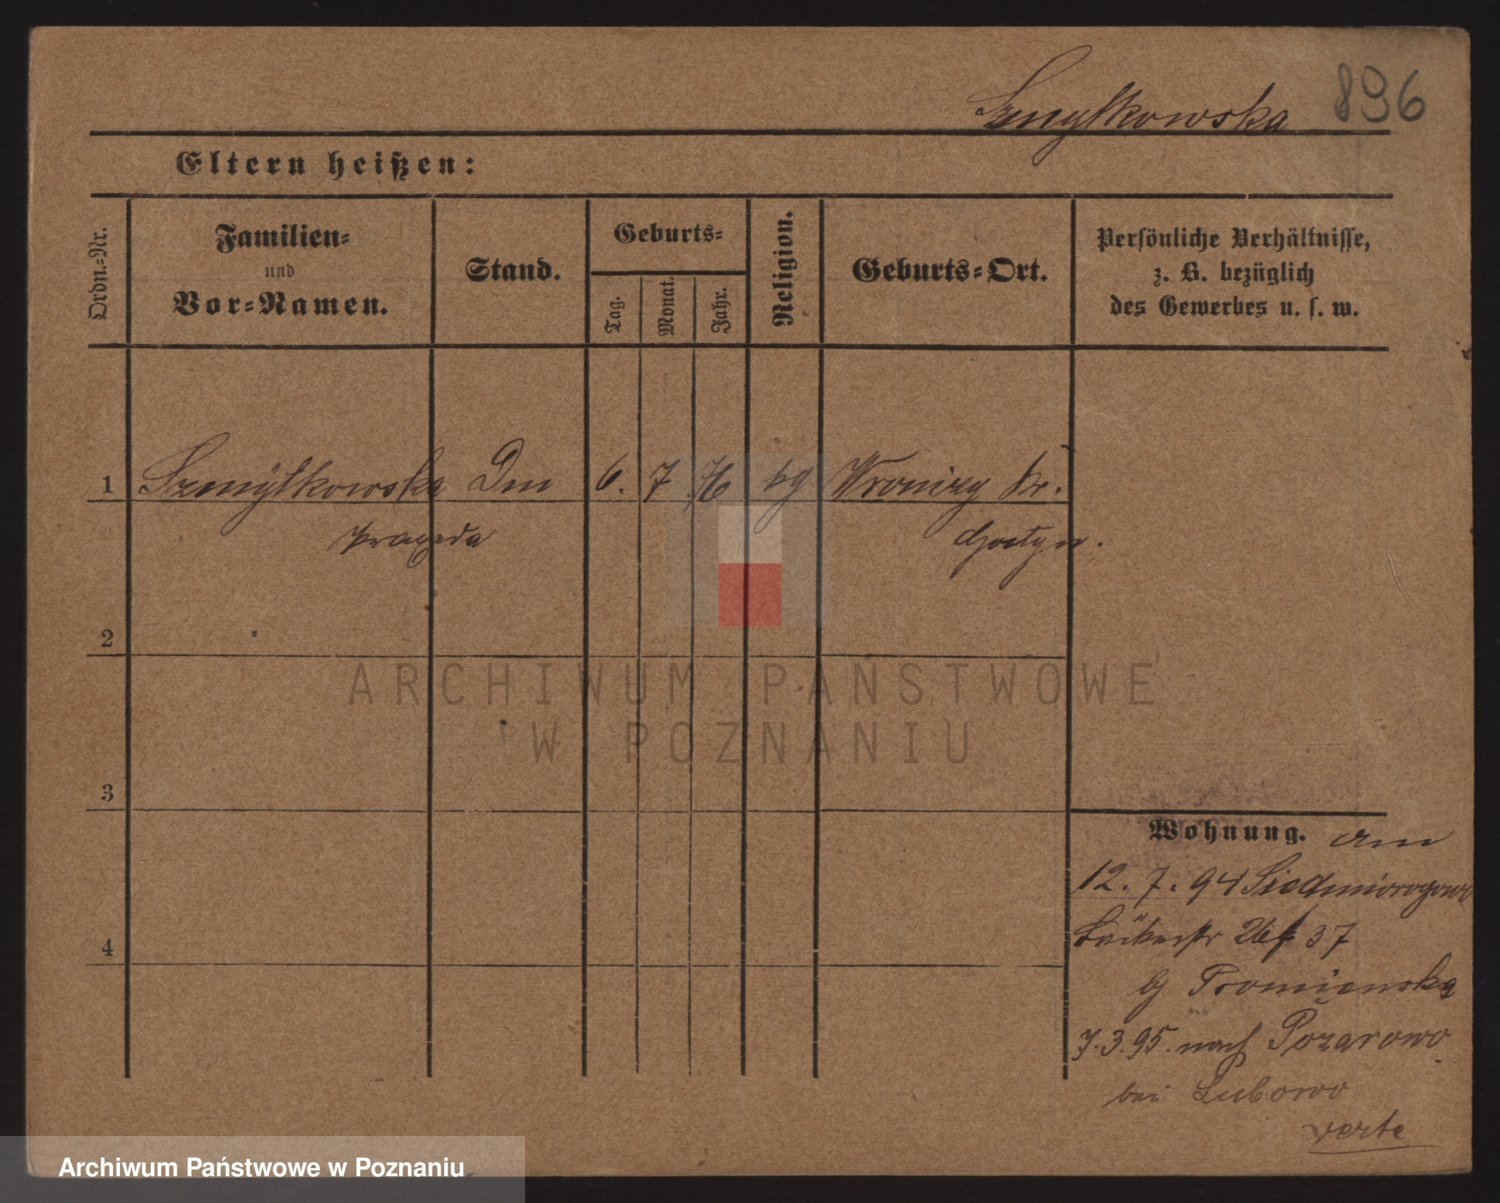 Szmytkowska 896
Eltern heißen:
Ordn.-Nr.
Familien-
und
Vor-Namen.
Stand.
Geburts-
Tag.
Monat.
Jahr.
Religion.
Geburts-Ort.
Persönliche Verhältnisse,
z. B. bezüglich
des Gewerbes u. s. w.
1 Szmytkowska 6. 7 76 kg Kr.
Gostyn.
2
3
4
Wohnung. am
12. 7. 94 Siedmiorogowo
37
7. 3. 95. nach Pożarowo
bei Lubowo
verte
ARCHIWUM PAŃSTWOWE
W POZNANIU
Archiwum Państwowe w Poznaniu